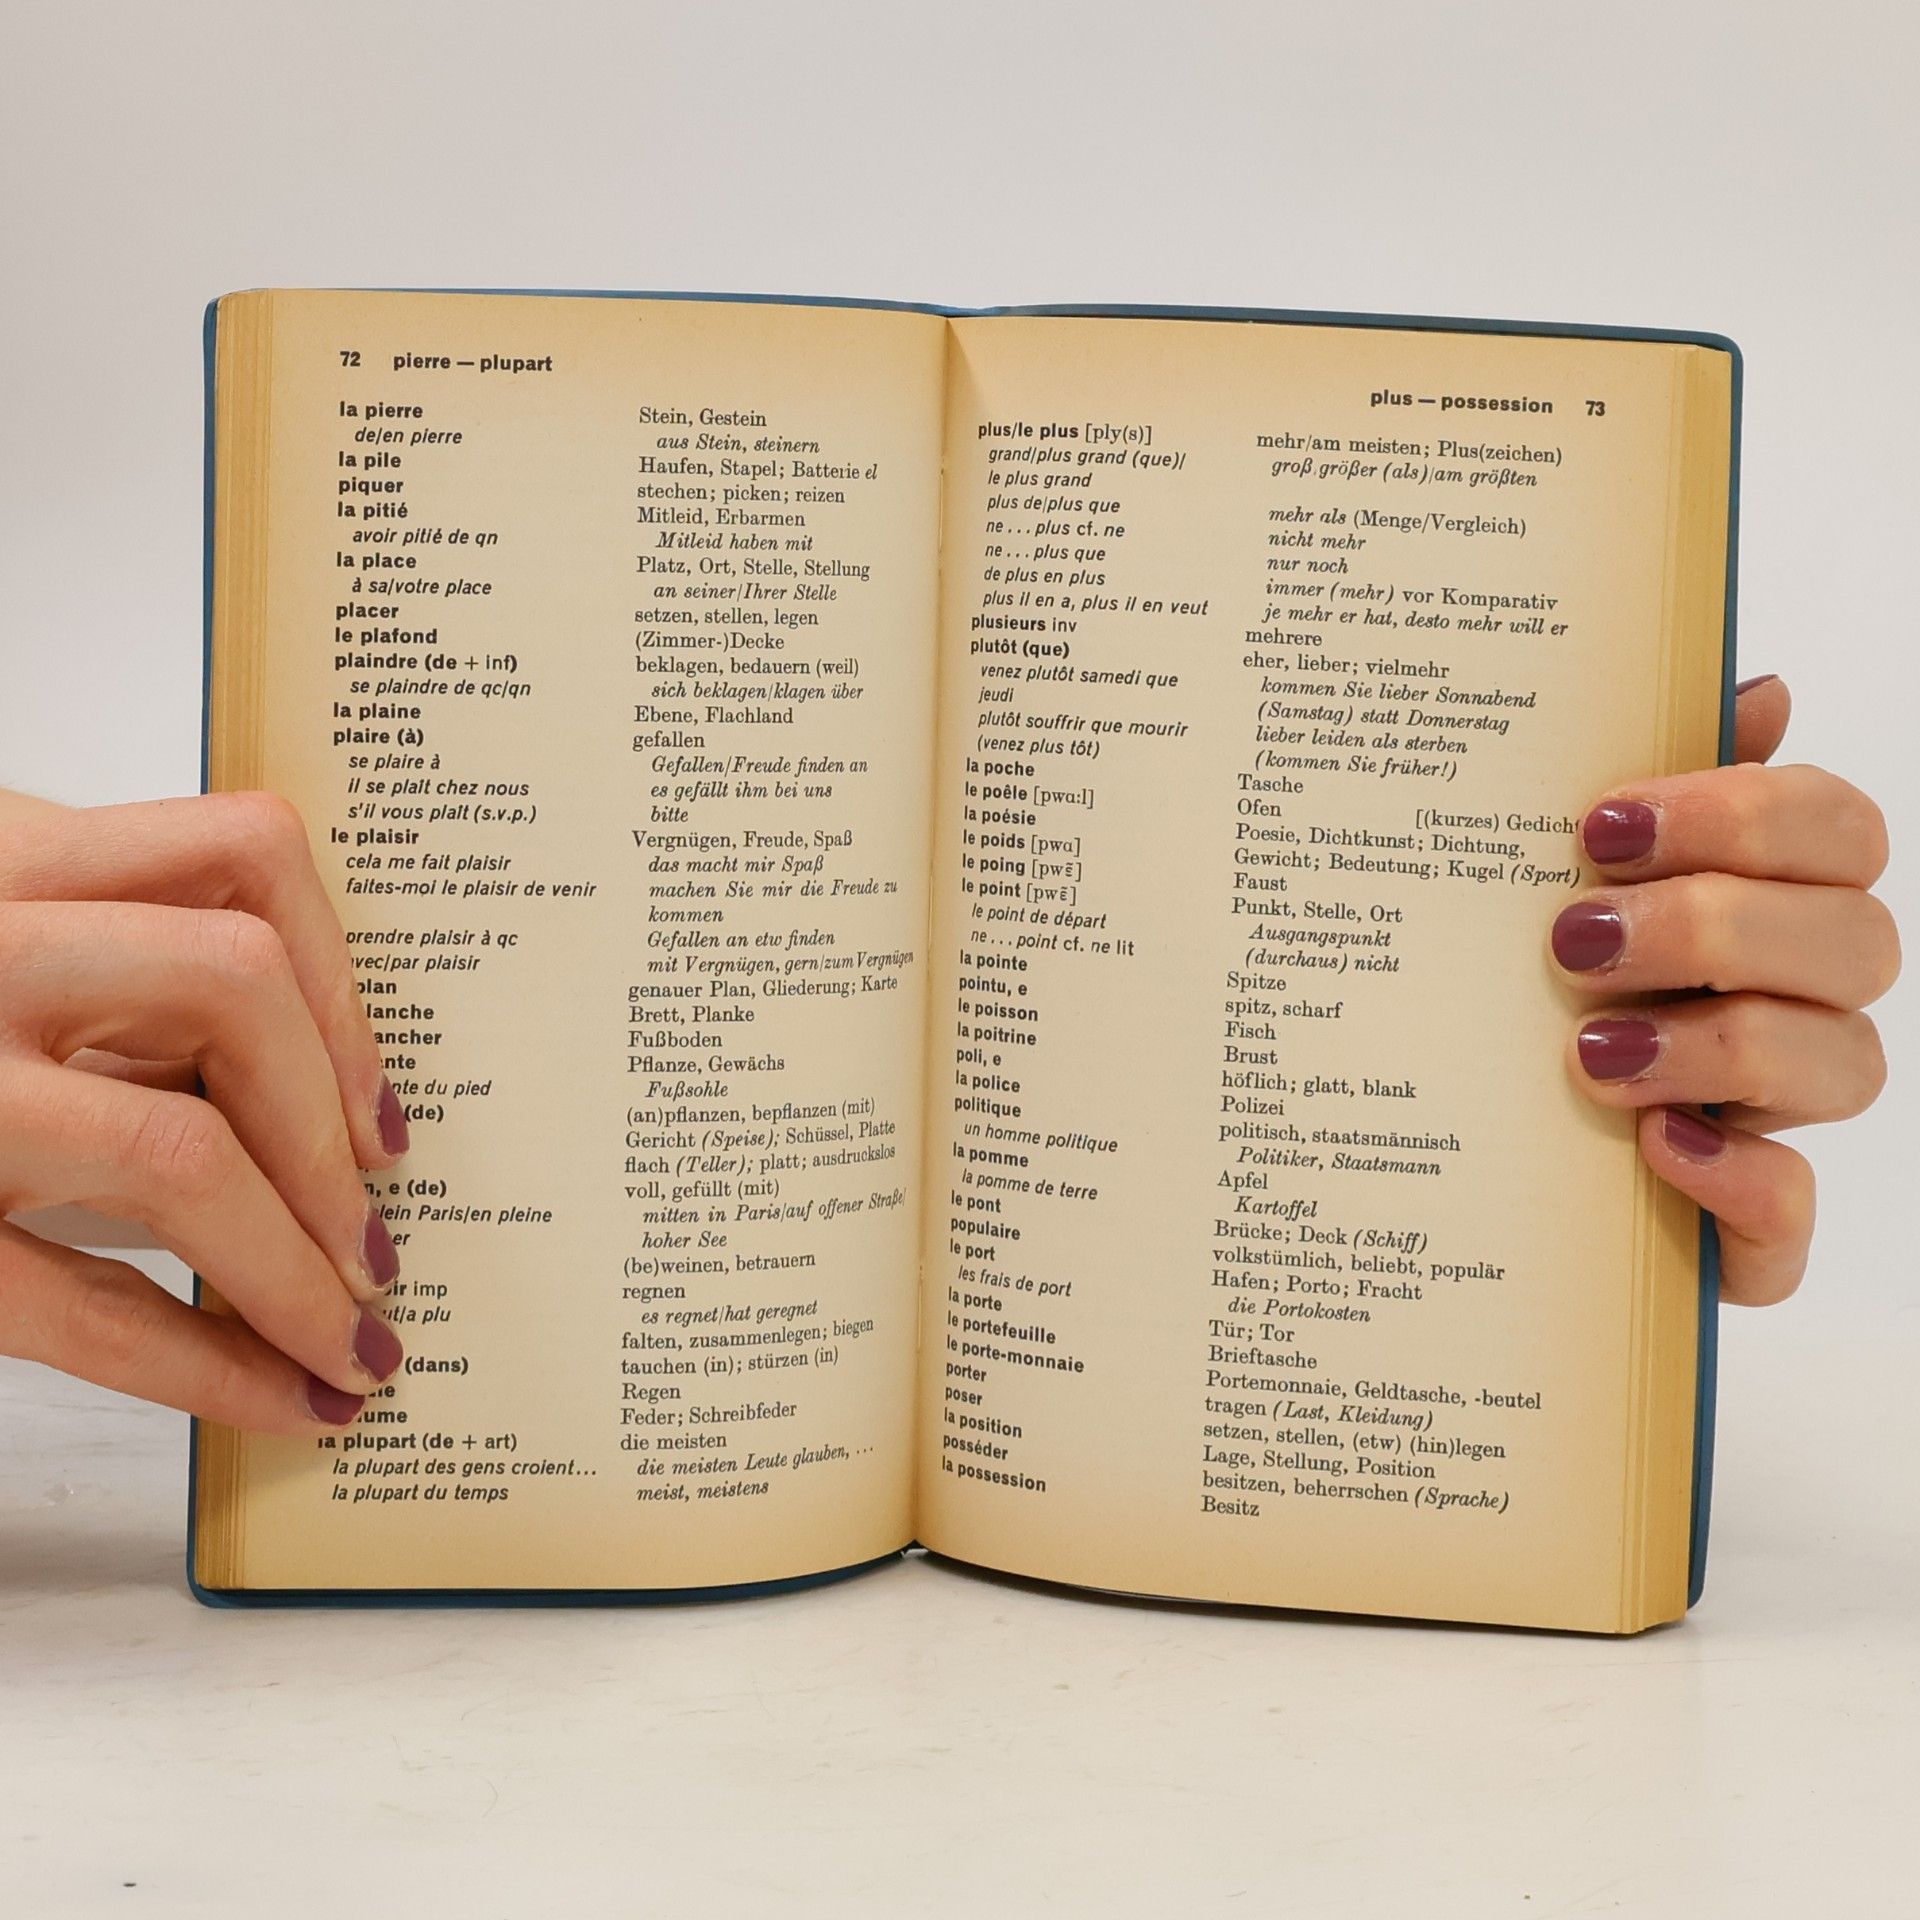 72 pierre — plupart
la pierre Stein, Gestein
de/en pierre aus Stein, steinern
la pile Haufen, Stapel; Batterie el
piquer stechen; picken; reizen
la pitié Mitleid, Erbarmen
avoir pitié de qn Mitleid haben mit
la place Platz, Ort, Stelle, Stellung
à sa/votre place an seiner/Ihrer Stelle
placer setzen, stellen, legen
le plafond (Zimmer-)Decke
plaindre (de + inf) beklagen, bedauern (weil)
se plaindre de qc/qn sich beklagen/klagen über
la plaine Ebene, Flachland
plaire (à) gefallen
se plaire à Gefallen/Freude finden an
il se plaît chez nous es gefällt ihm bei uns
s'il vous plaît (s.v.p.) bitte
le plaisir Vergnügen, Freude, Spaß
cela me fait plaisir das macht mir Spaß
faites-moi le plaisir de venir machen Sie mir die Freude zu
kommen
prendre plaisir à qc Gefallen an etw finden
avec/par plaisir mit Vergnügen, gern/zum Vergnügen
plan genauer Plan, Gliederung; Karte
Brett, Planke
Fußboden
Pflanze, Gewächs
du pied Fußsohle
(de) (an)pflanzen, bepflanzen (mit)
Gericht (Speise); Schüssel, Platte
flach (Teller); platt; ausdruckslos
e (de) voll, gefüllt (mit)
Paris/en pleine mitten in Paris/auf offener Straße/
hoher See
(be)weinen, betrauern
imp regnen
plu es regnet/hat geregnet
falten, zusammenlegen; biegen
(dans) tauchen (in); stürzen (in)
Regen
Feder; Schreibfeder
la plupart (de + art) die meisten
la plupart des gens croient... die meisten Leute glauben, ...
la plupart du temps meist, meistens
plus — possession 73
plus/le plus [ply(s)] mehr/am meisten; Plus(zeichen)
grand/plus grand (que)/ groß/größer (als)/am größten
le plus grand
plus de/plus que mehr als (Menge/Vergleich)
ne ... plus cf. ne nicht mehr
ne ... plus que nur noch
de plus en plus immer (mehr) vor Komparativ
plus il en a, plus il en veut je mehr er hat, desto mehr will er
plusieurs inv mehrere
plutôt (que) eher, lieber; vielmehr
venez plutôt samedi que kommen Sie lieber Sonnabend
jeudi (Samstag) statt Donnerstag
plutôt souffrir que mourir lieber leiden als sterben
(venez plus tôt) (kommen Sie früher!)
la poche Tasche
le poêle [pwɑ:l] Ofen [(kurzes) Gedicht
la poésie Poesie, Dichtkunst; Dichtung,
le poids [pwɑ] Gewicht; Bedeutung; Kugel (Sport)
le poing [pwɛ̃] Faust
le point [pwɛ̃] Punkt, Stelle, Ort
le point de départ Ausgangspunkt
ne ... point cf. ne lit (durchaus) nicht
la pointe Spitze
pointu, e spitz, scharf
le poisson Fisch
la poitrine Brust
poli, e höflich; glatt, blank
la police Polizei
politique politisch, staatsmännisch
un homme politique Politiker, Staatsmann
la pomme Apfel
la pomme de terre Kartoffel
le pont Brücke; Deck (Schiff)
populaire volkstümlich, beliebt, populär
le port Hafen; Porto; Fracht
les frais de port die Portokosten
la porte Tür; Tor
le portefeuille Brieftasche
le porte-monnaie Portemonnaie, Geldtasche, -beutel
porter tragen (Last, Kleidung)
poser setzen, stellen, (etw) (hin)legen
la position Lage, Stellung, Position
posséder besitzen, beherrschen (Sprache)
la possession Besitz